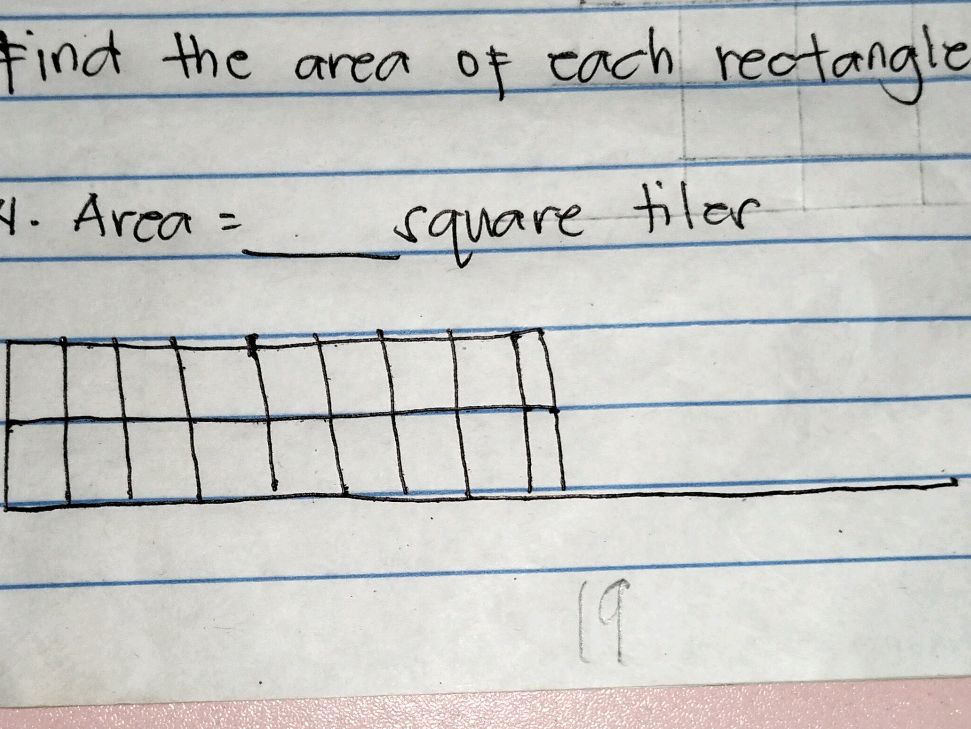 Find the area of each rectangle
4. Area = ___ square tiles
19